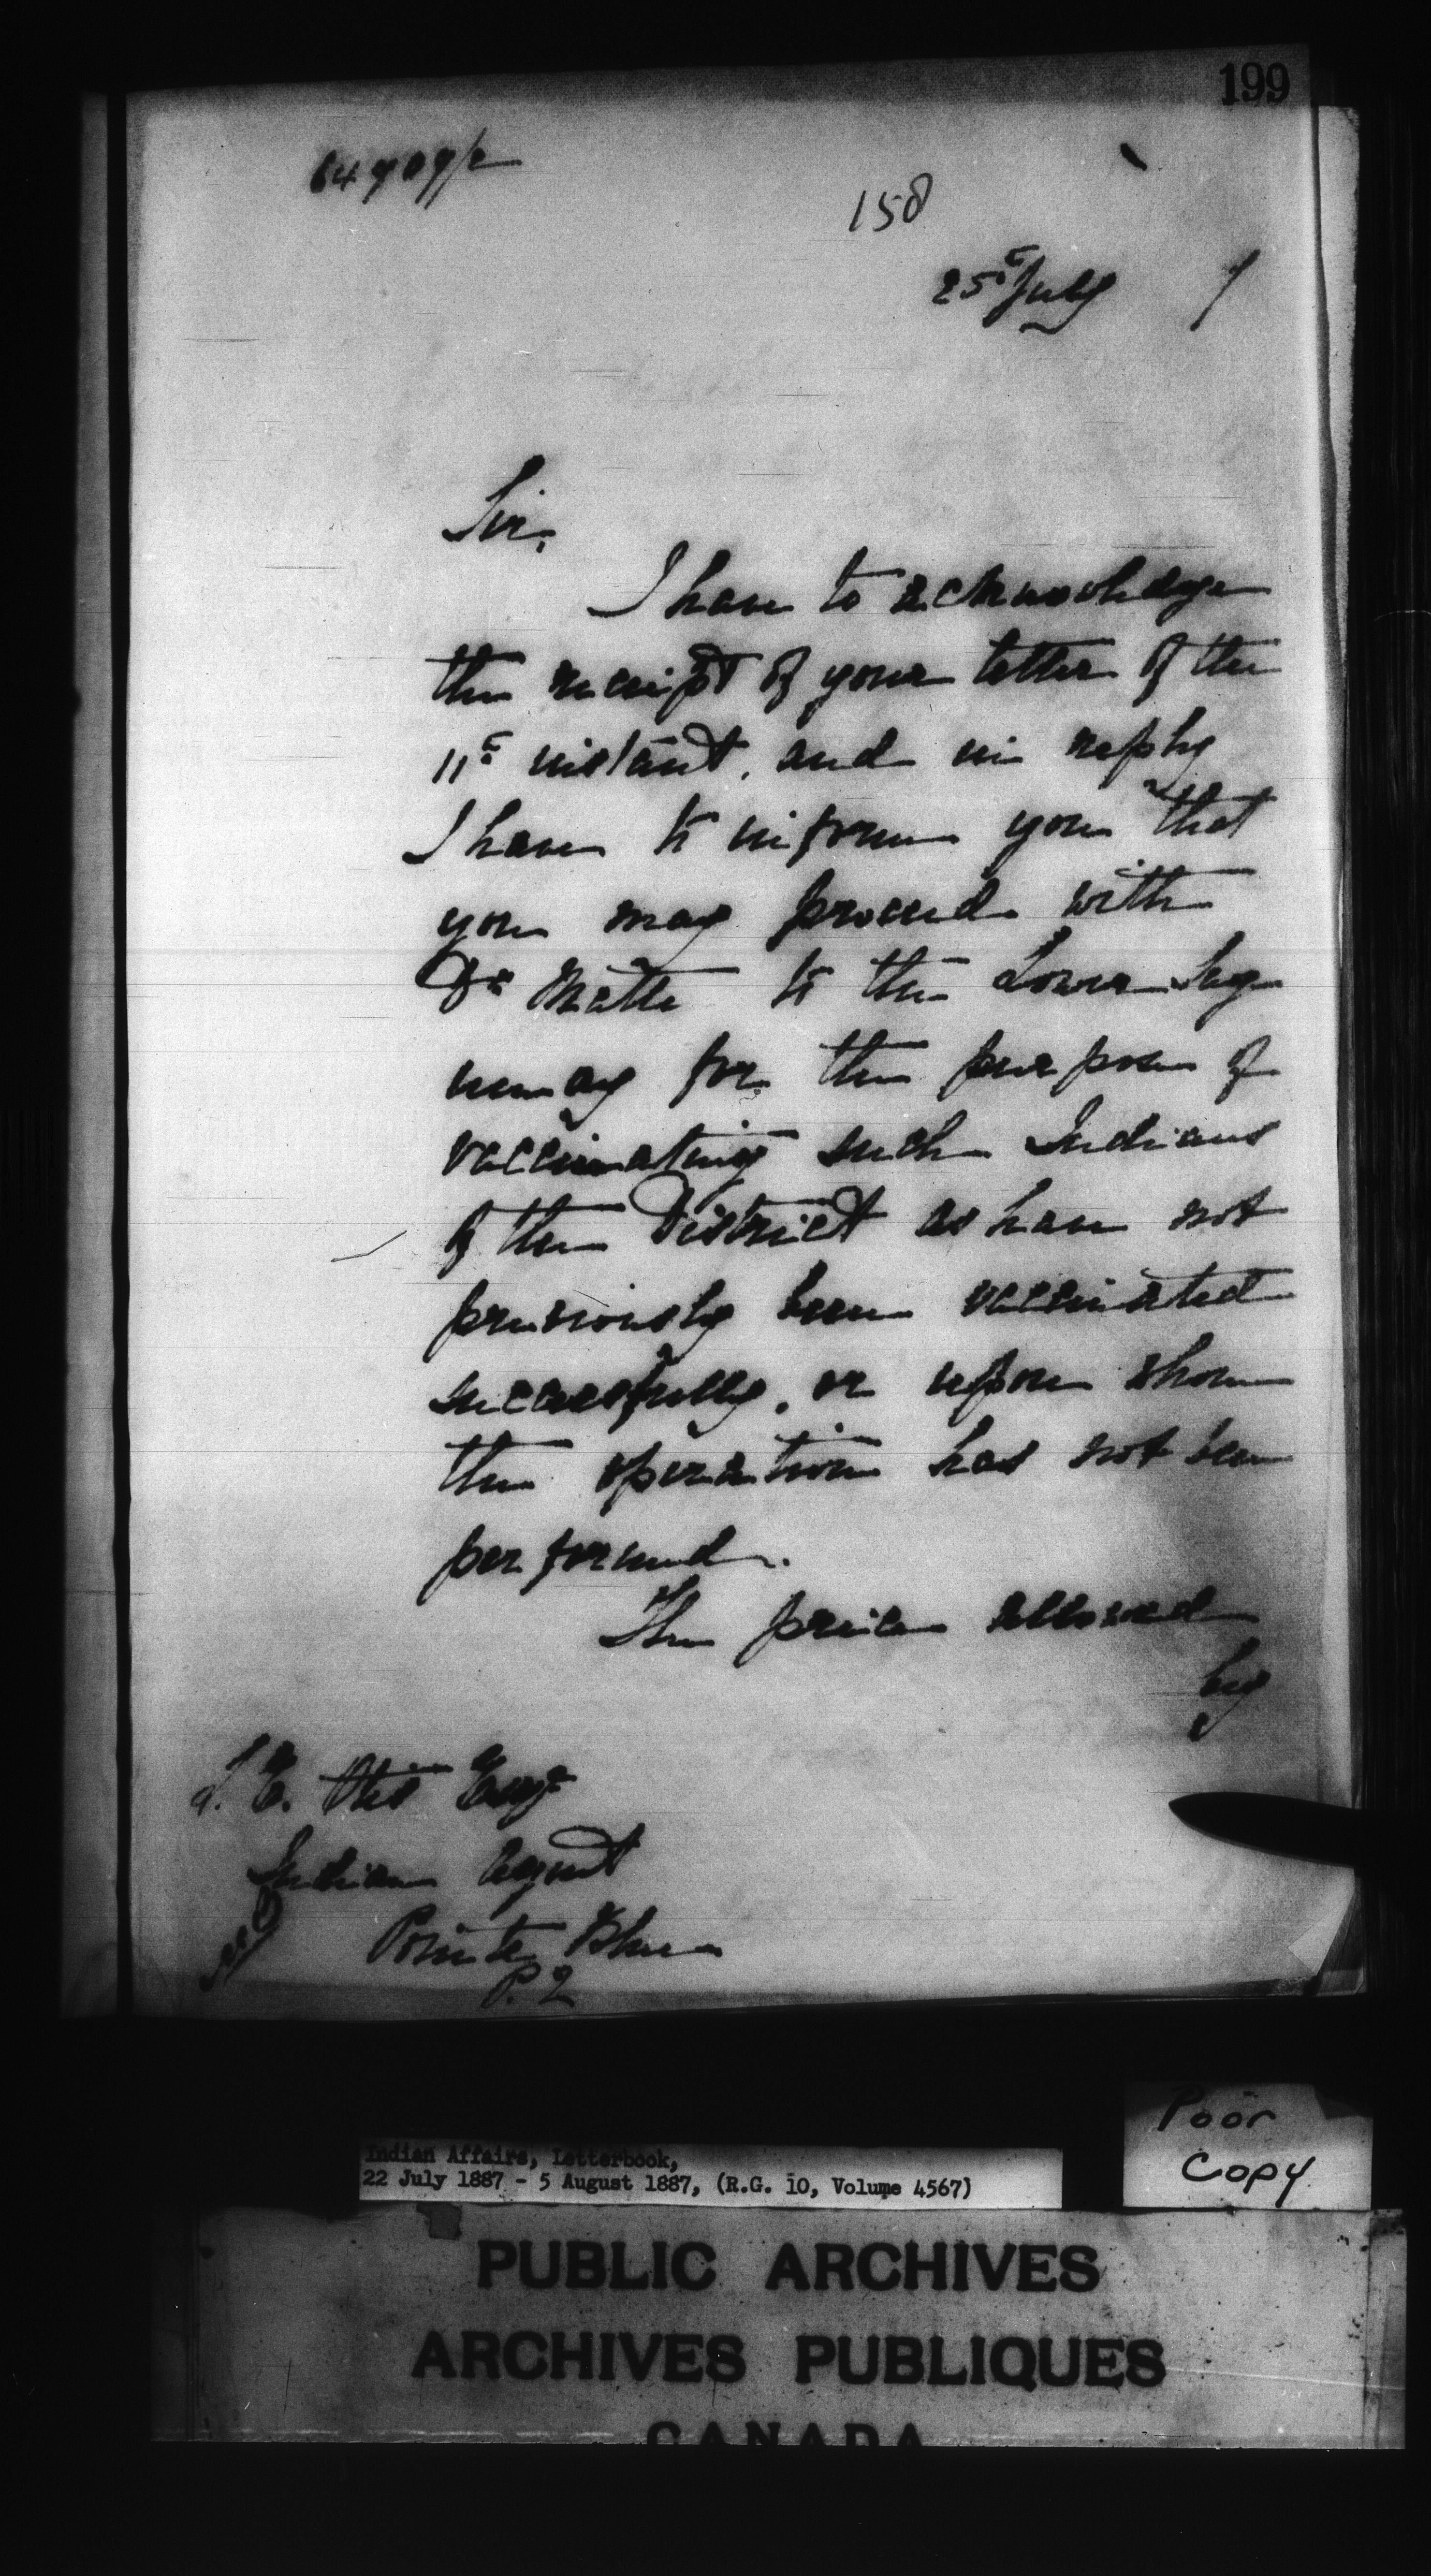 199
158
25th July 7
Sir,
I have to acknowledge
the receipt of your letter of the
11th instant, and in reply
I have to inform you that
you may proceed with
Dr Matte to the Lower Sag-
uenay for the purpose of
vaccinating such Indians
of the District as have not
previously been vaccinated
successfully, or upon whom
the operation has not been
performed.
The price allowed
by
L. E. Otis Esqr
Indian Agent
Pointe Bleue
P. Q
Poor
Copy
Indian Affairs, Letterbook,
22 July 1887 - 5 August 1887, (R.G. 10, Volume 4567)
PUBLIC ARCHIVES
ARCHIVES PUBLIQUES
CANADA